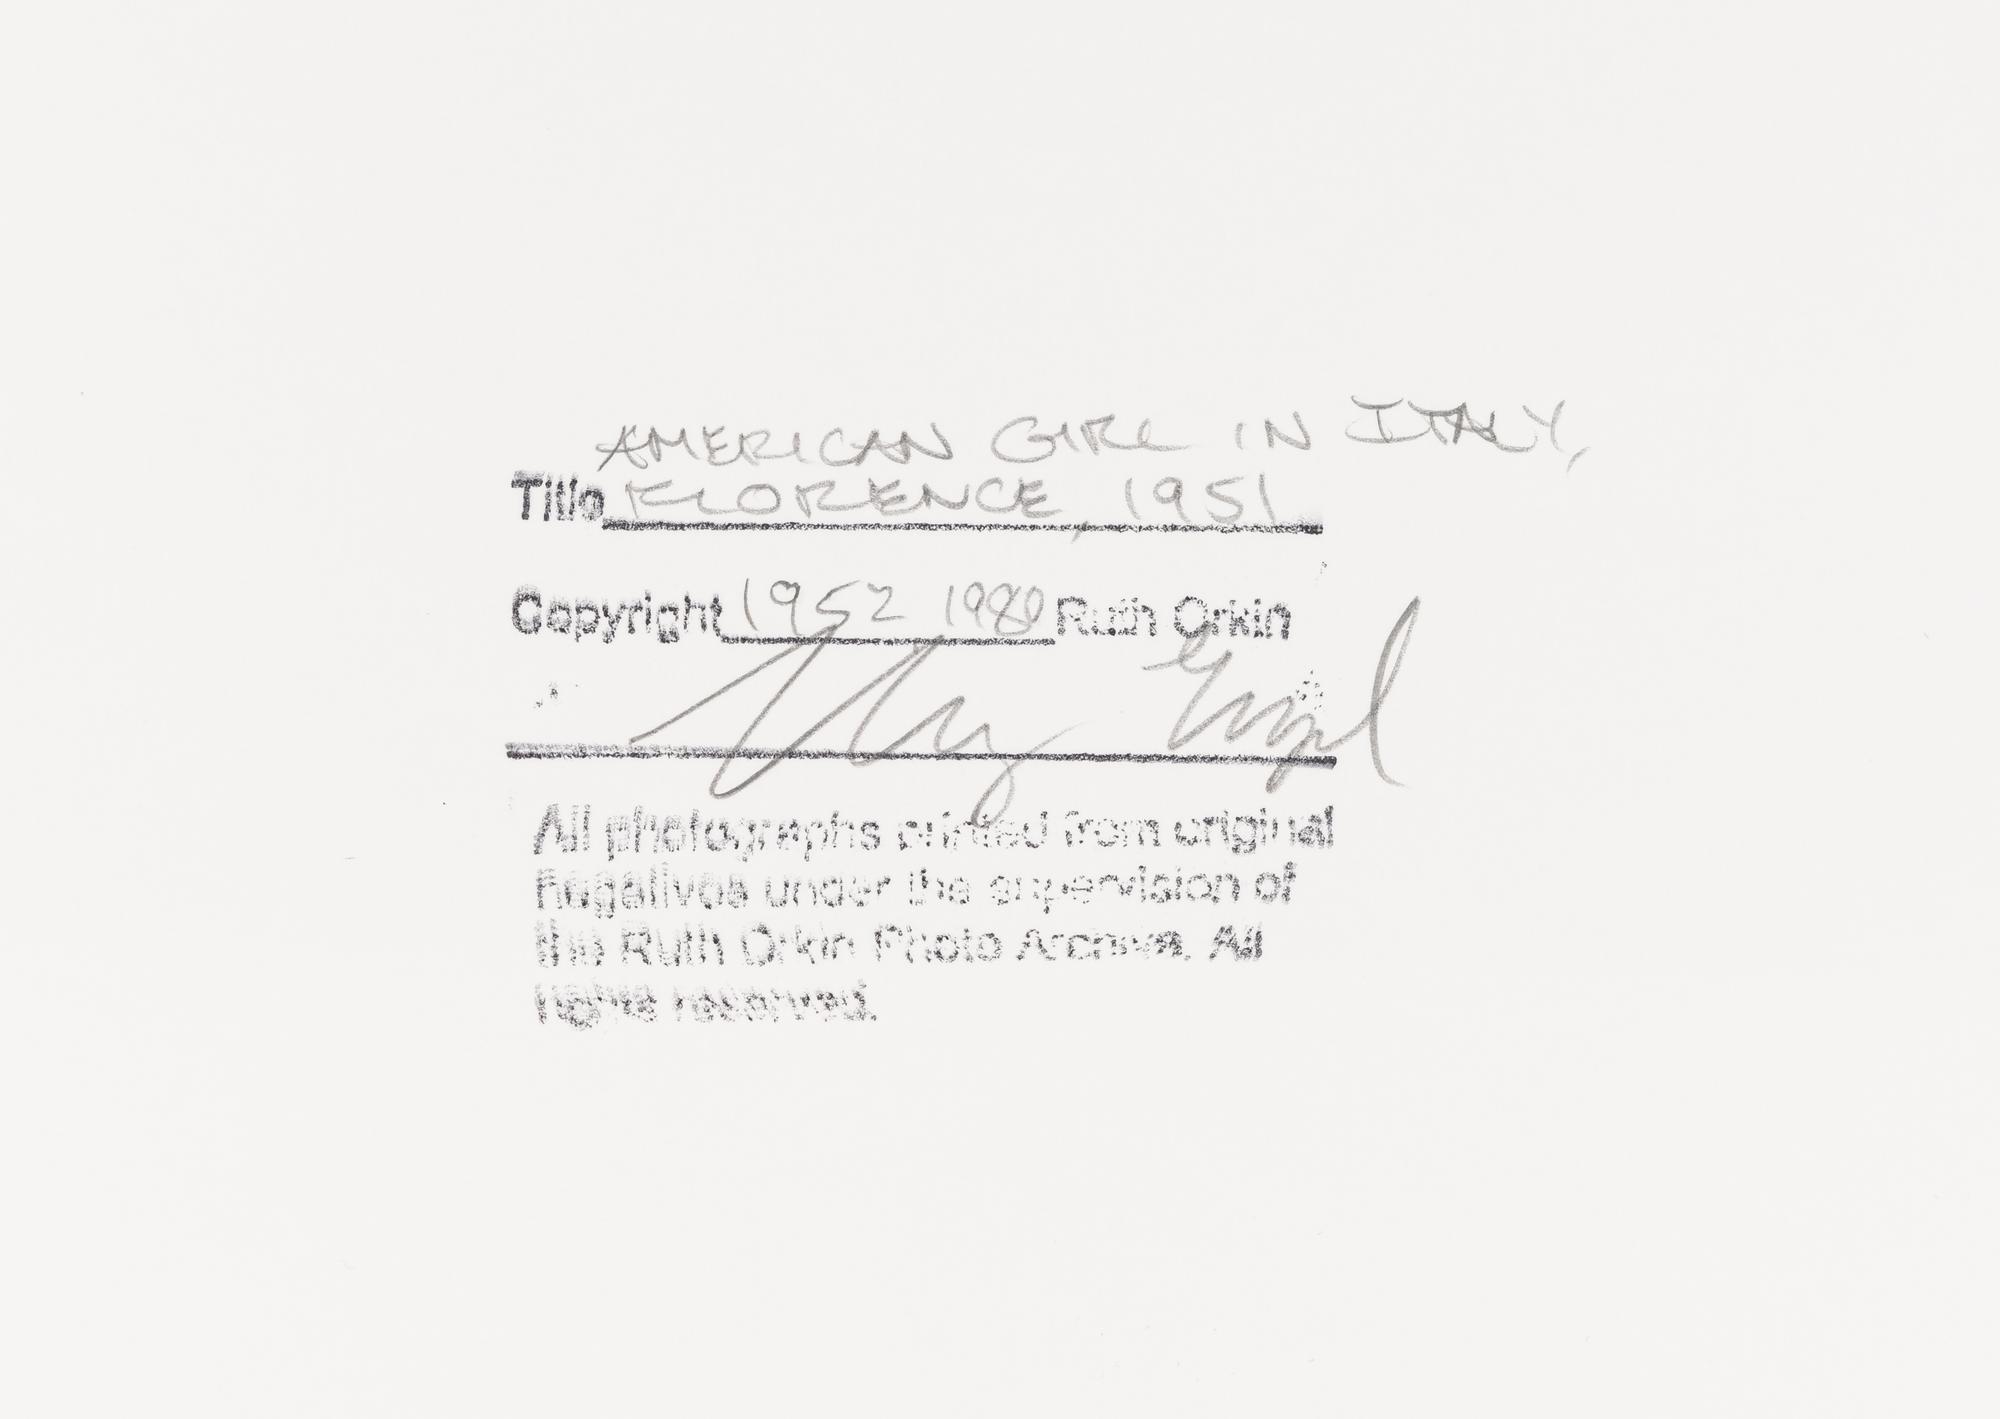 AMERICAN GIRL IN ITALY,
Title FLORENCE, 1951
Copyright 1952 1980 Ruth Orkin
All photographs printed from original
negatives under the supervision of
the Ruth Orkin Photo Archive. All
rights reserved.